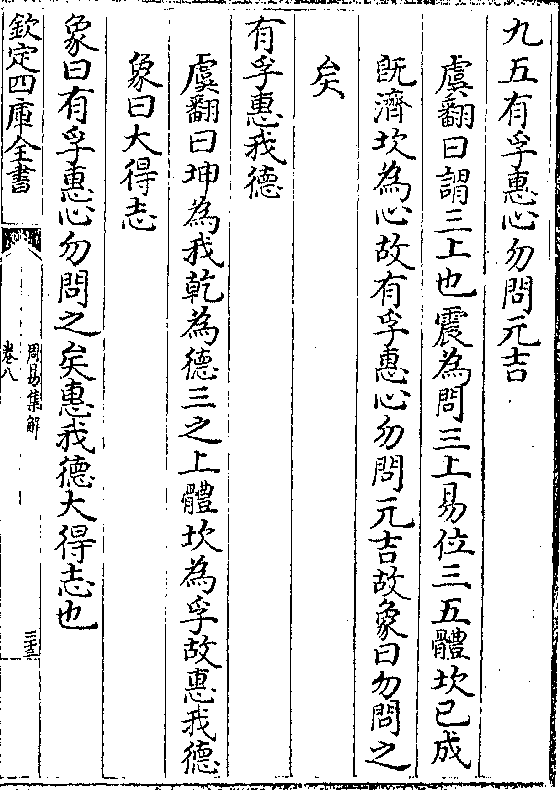 九五有孚惠心勿問元吉
虞翻曰謂三上也震為問三上易位三五體坎已成
既濟坎為心故有孚惠心勿問元吉故象曰勿問之
矣
有孚惠我德
虞翻曰坤為我乾為德三之上體坎為孚故惠我德
象曰大得志
象曰有孚惠心勿問之矣惠我德大得志也
欽定四庫全書
周易集解
卷八
三十三